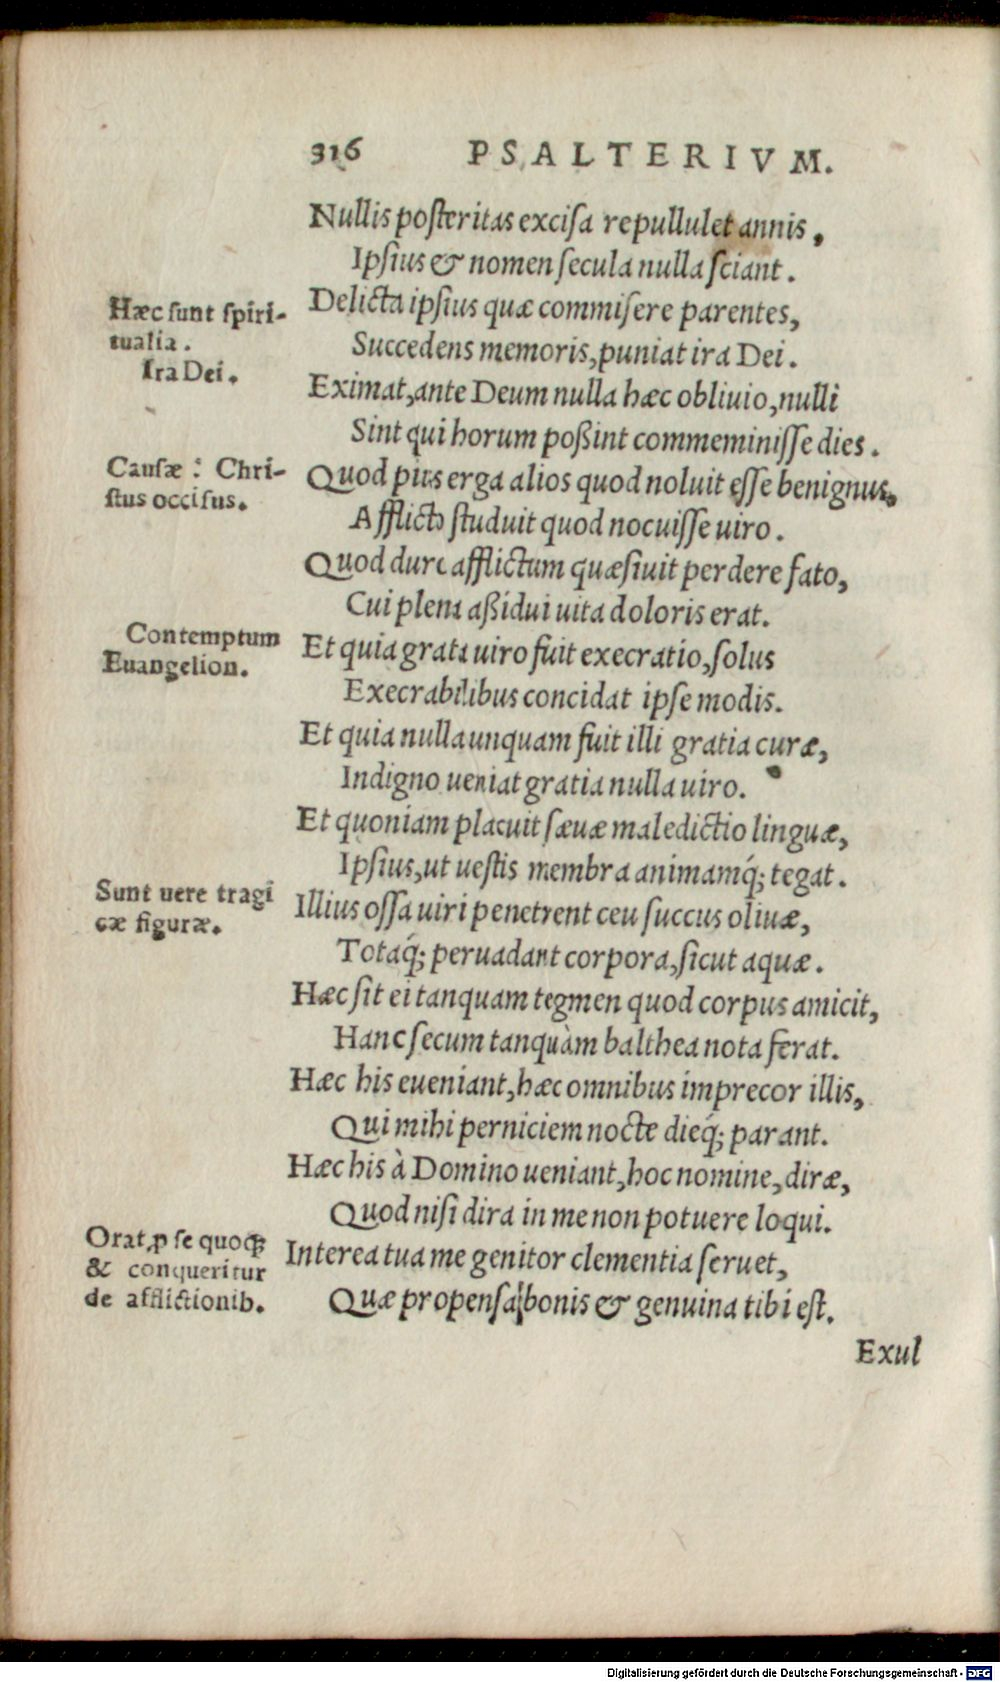 316 PSALTERIVM.
Nullis posteritas excisa repullulet annis,
Ipsius & nomen secula nulla sciant.
Hæc sunt spiri-
tualia.
Ira Dei.
Delicta ipsius quæ commisere parentes,
Succedens memoris, puniat ira Dei.
Eximat, ante Deum nulla hæc obliuio, nulli
Sint qui horum poßint commeminisse dies.
Causæ: Chri-
stus occisus.
Quod pius erga alios quod noluit esse benignus,
Afflicto studuit quod nocuisse uiro.
Quod duro afflictum quæsiuit perdere fato,
Cui plena aßidui uita doloris erat.
Contemptum
Euangelion.
Et quia grata uiro fuit execratio, solus
Execrabilibus concidat ipse modis.
Et quia nulla unquam fuit illi gratia curæ,
Indigno ueniat gratia nulla uiro.
Et quoniam placuit sæuæ maledictio linguæ,
Ipsius, ut uestis membra animamq́; tegat.
Sunt uere tragi
cæ figuræ.
Illius ossa uiri penetrent ceu succus oliuæ,
Totaq́; peruadant corpora, sicut aquæ.
Hæc sit ei tanquam tegmen quod corpus amicit,
Hanc secum tanquàm balthea nota ferat.
Hæc his eueniant, hæc omnibus imprecor illis,
Qui mihi perniciem nocte dieq́; parant.
Hæc his à Domino ueniant, hoc nomine, diræ,
Quod nisi dira in me non potuere loqui.
Orat ꝓ se quoqꝫ
& conqueritur
de afflictionib.
Interea tua me genitor clementia seruet,
Quæ propensa bonis & genuina tibi est.
Exul
Digitalisierung gefördert durch die Deutsche Forschungsgemeinschaft - DFG